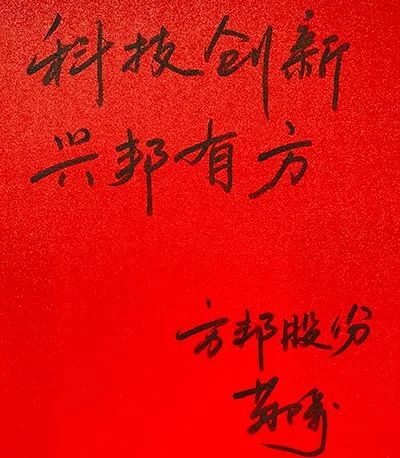 科技创新
兴邦有方
方邦股份